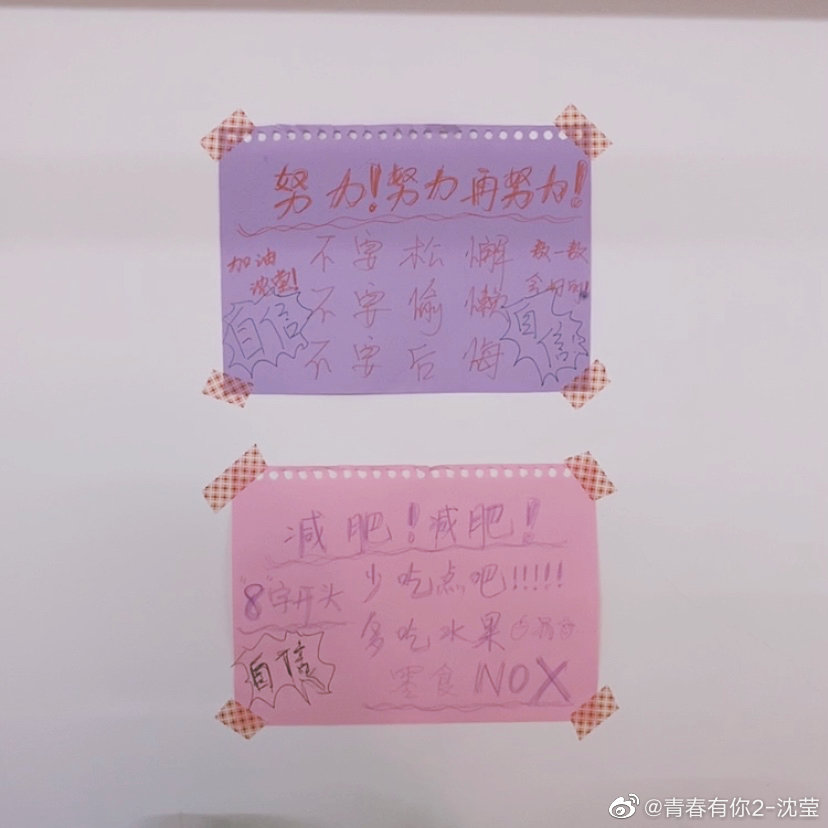 努力!努力再努力!
加油
沈莹!
不要松懈
不要偷懒
不要后悔
数一数
自信
自信
减肥!减肥!
"8"字开头
少吃点吧!!!!!
多吃水果
零食NOX
自信
@青春有你2-沈莹